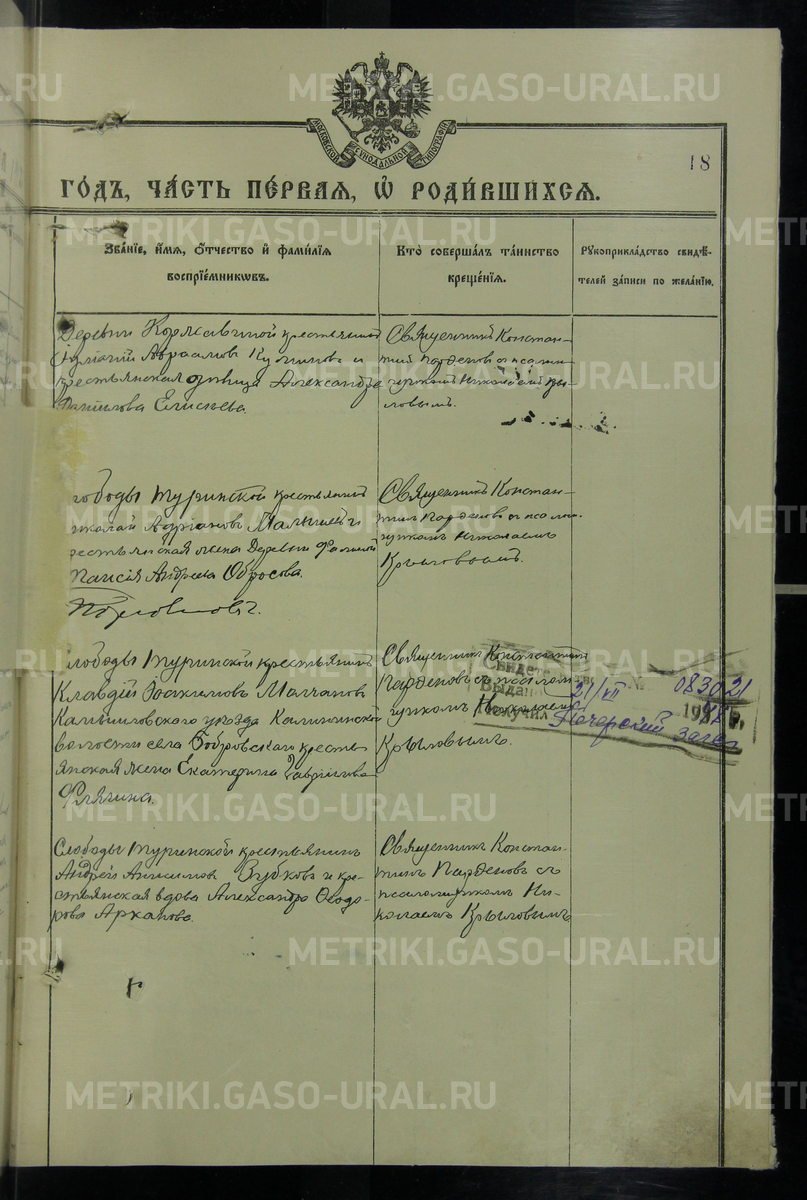 МОСКОВСКОЙ СѴНОДАЛЬНОЙ ТИПОГРАФІИ
18
ГОДЪ, ЧАСТЬ ПЕРВАЯ, Ѡ РОДИВШИХСЯ.
Званіе, имя, отчество и фамилія
воспріемниковъ.
Кто совершалъ таинство
крещенія.
Рукоприкладство свидѣ-
телей записи по желанію.
Деревни Коржавиной крестьянинъ
Авраамовъ и
крестьянская дѣвица Александра
Данилова Елисѣева
Священникъ Констан-
тинъ Парѳеновъ с псалом-
щикомъ Николаемъ Кры-
ловымъ.
лободы Туринской крестьянинъ
иколай Адриановъ и
рестьянская жена Деревни
Таисія Андреева Обросова.
Священникъ Констан-
тинъ Парѳеновъ с псалом-
щикомъ Николаемъ
Крыловымъ.
Слободы Туринской крестьянинъ
Клавдій Іоакимовъ Малчановъ
Камышловскаго уѣзда Калиновской
волости села Бобровскаго кресть-
янская жена Екатерина Гаврилова
Флягина.
Священникъ Константинъ
Парѳеновъ съ псалом-
щикомъ Николаемъ
Крыловымъ.
Свидет
Выдан
Получил
21/VII
083021
Печерский загс
Слободы Туринской крестьянинъ
Андрей Анисимовъ Зубковъ и кре-
стьянская вдова Александра Ѳеодо-
рова Арканова.
Священникъ Констан-
тинъ Парѳеновъ съ
псаломщикомъ Ни-
колаемъ Крыловымъ
METRIKI.GASO-URAL.RU